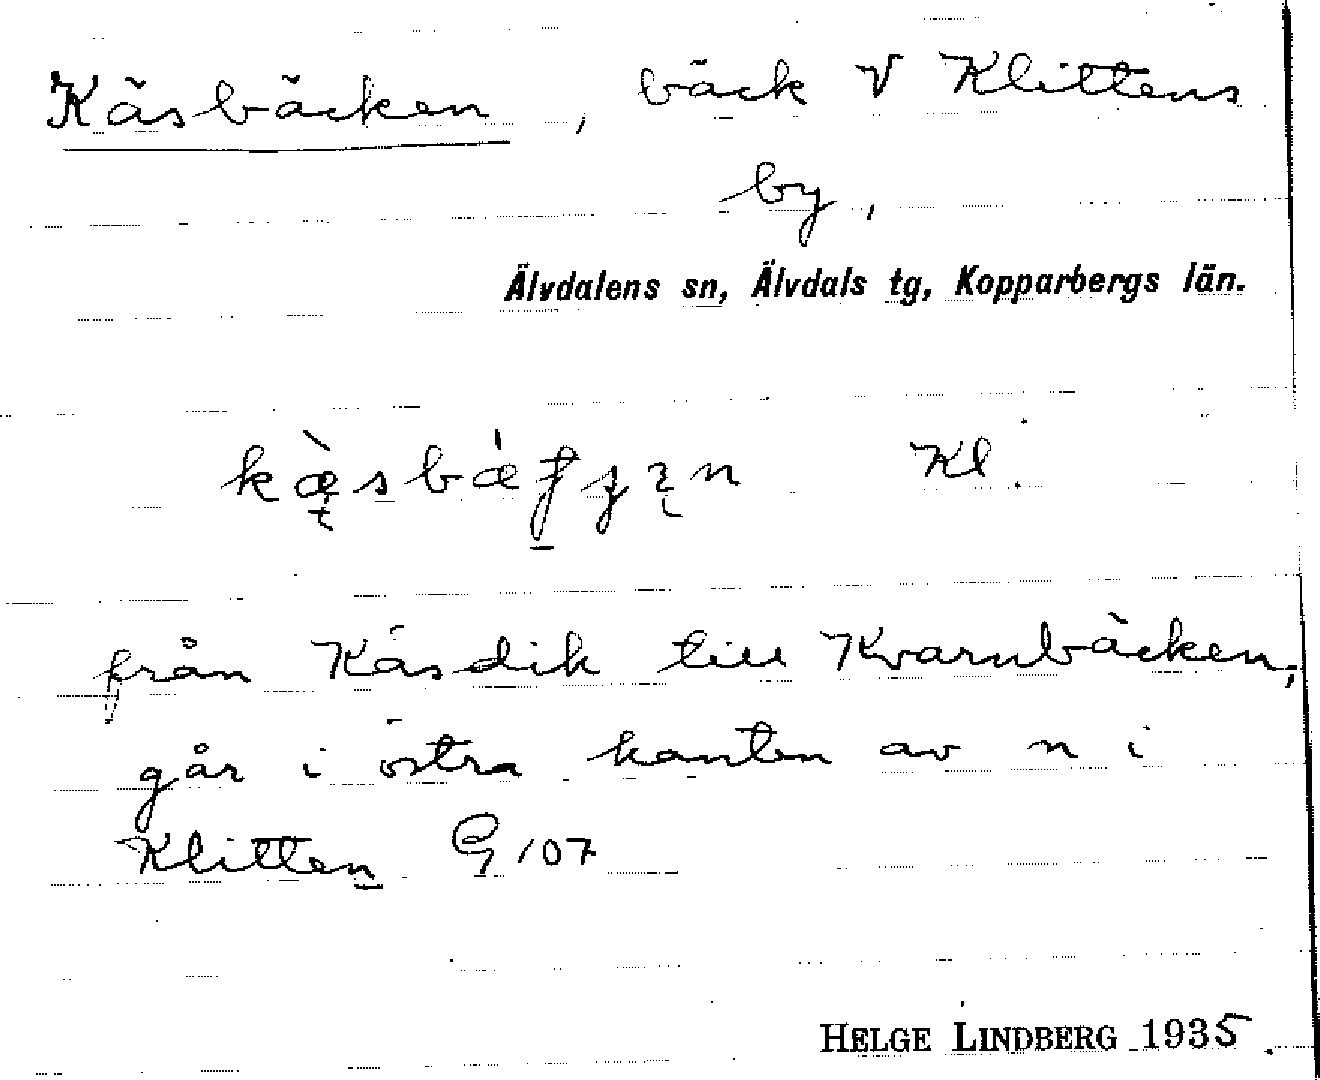 Käsbäcken, bäck V Klittens
by,
Älvdalens sn, Älvdals tg, Kopparbergs län.
Kl.
från Käsdik till Kvarnbäcken,
går i östra kanten av n i
Klitten G 107
HELGE LINDBERG 1935.